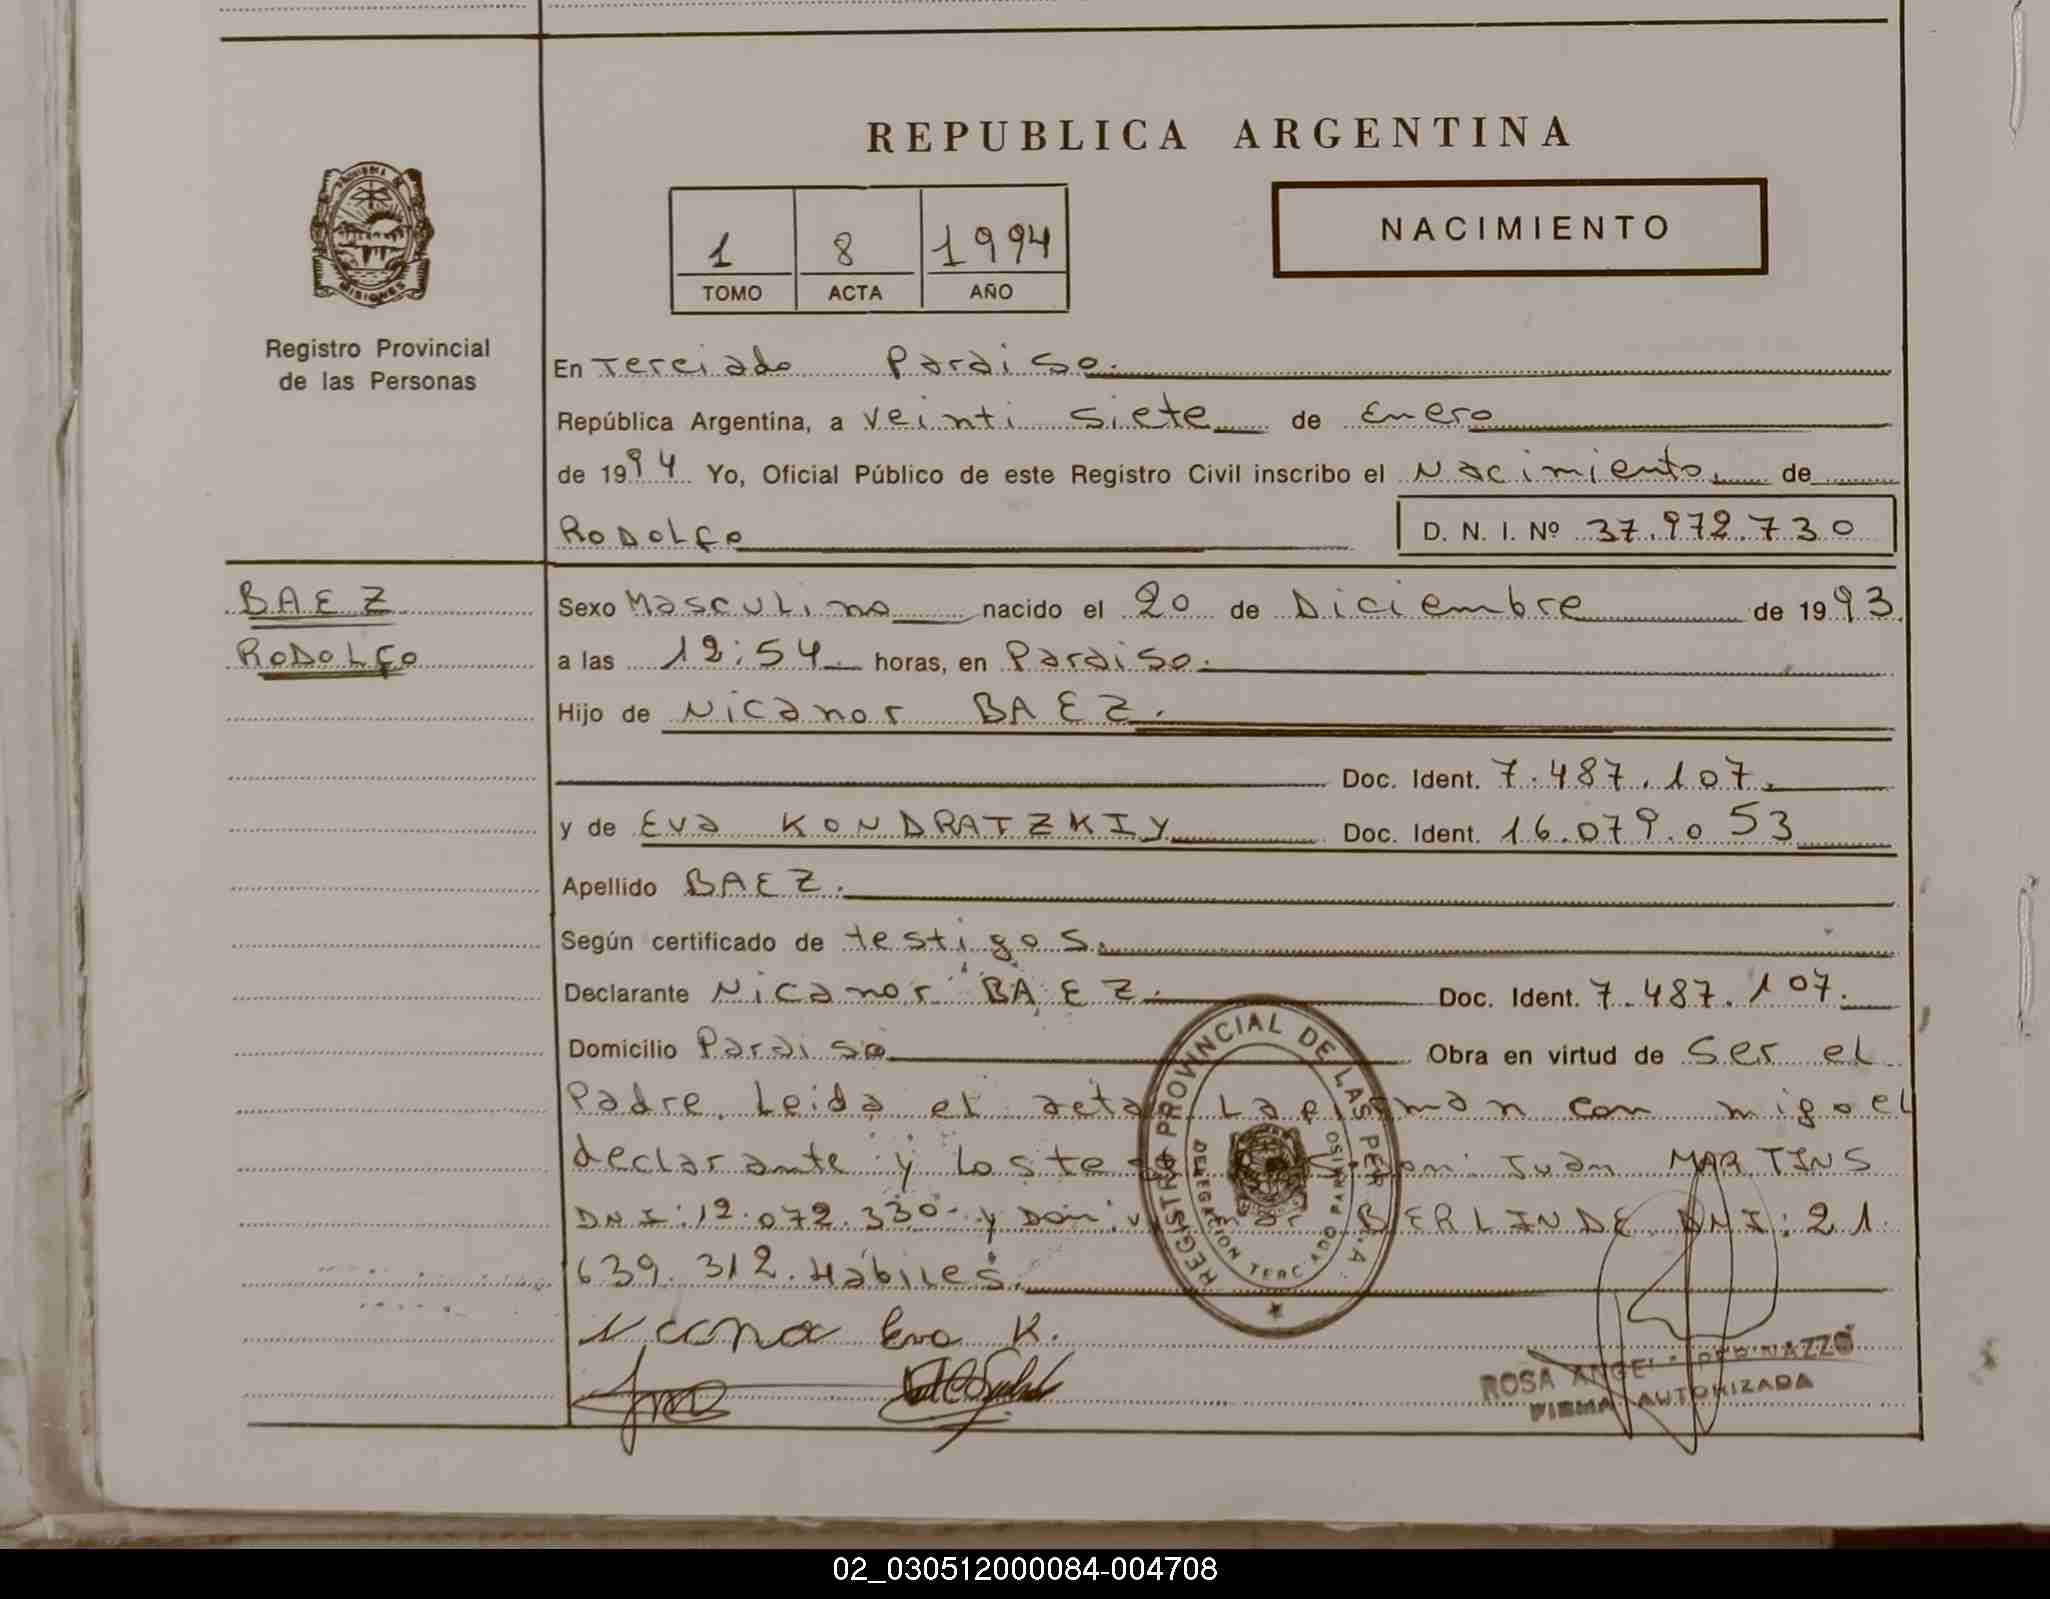 REPUBLICA ARGENTINA
NACIMIENTO
1 8 1994
TOMO ACTA AÑO
MISIONES
Registro Provincial
de las Personas
En Terciado Paraiso.
República Argentina, a veinti siete de Enero
de 1994 Yo, Oficial Público de este Registro Civil inscribo el Nacimiento de
RODOLFO D. N. I. Nº 37.972.730
BAEZ
RODOLFO
Sexo Masculino nacido el 20 de Diciembre de 1993.
a las 12:54 horas, en Paraiso.
Hijo de Nicanor BAEZ.
Doc. Ident. 7.487.107.
y de Eva KONDRATZKIY Doc. Ident. 16.079.053
Apellido BAEZ.
Según certificado de testigos.
Declarante Nicanor BAEZ. Doc. Ident. 7.487.107.
Domicilio Paraiso Obra en virtud de Ser el
Padre. Leida el acta La firman con migo el
declarante y Los Don: Juan MARTINS
DNI: 12.072.330- y Don: BERLINDE DNI: 21.
639.312. Habiles.
REGISTRO PROVINCIAL DE LAS PER
DELEGACION TERCIADO PARAISO
Eva K.
ROSA
FIRMA AUTORIZADA
02_030512000084-004708